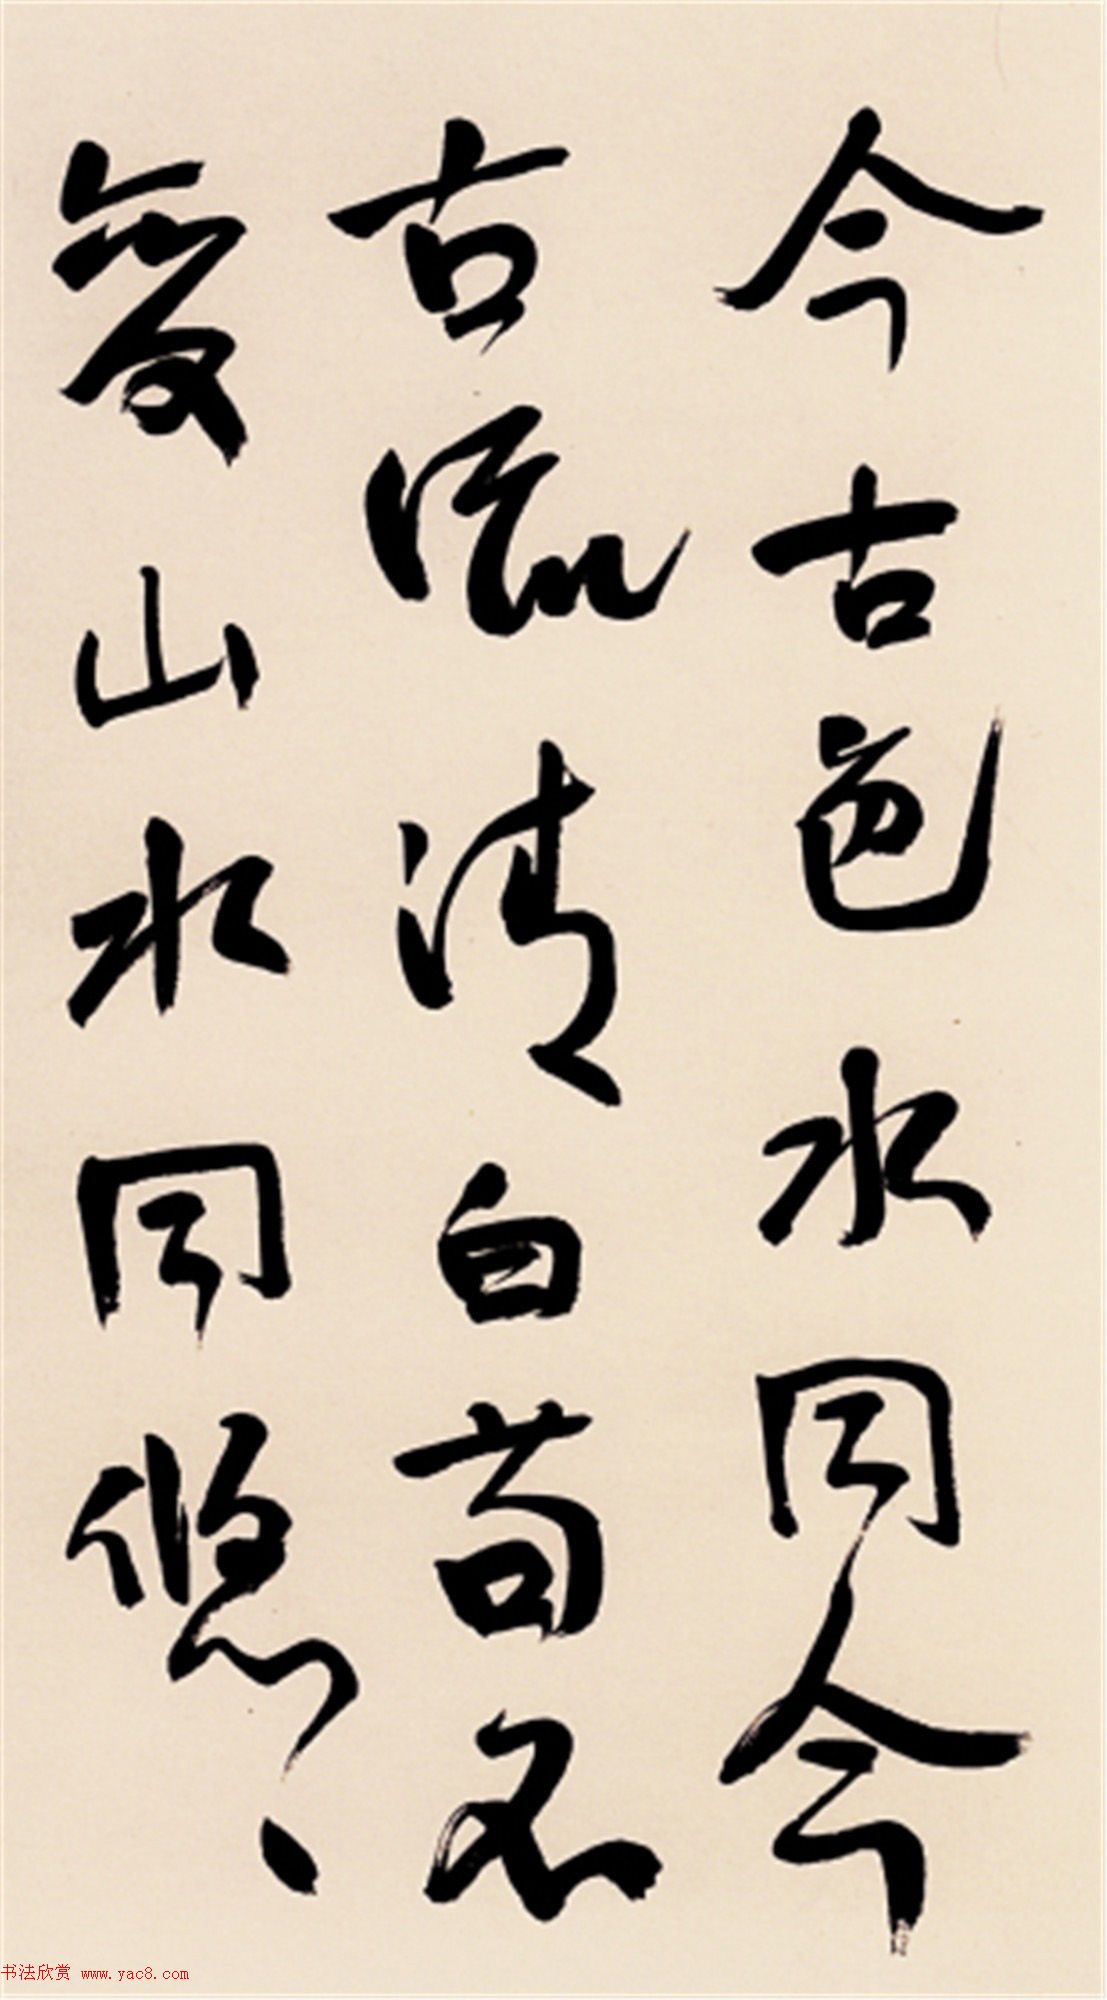 今古色水同今
古流清白苟不
變山水同悠、
书法欣赏 www.yac8.com